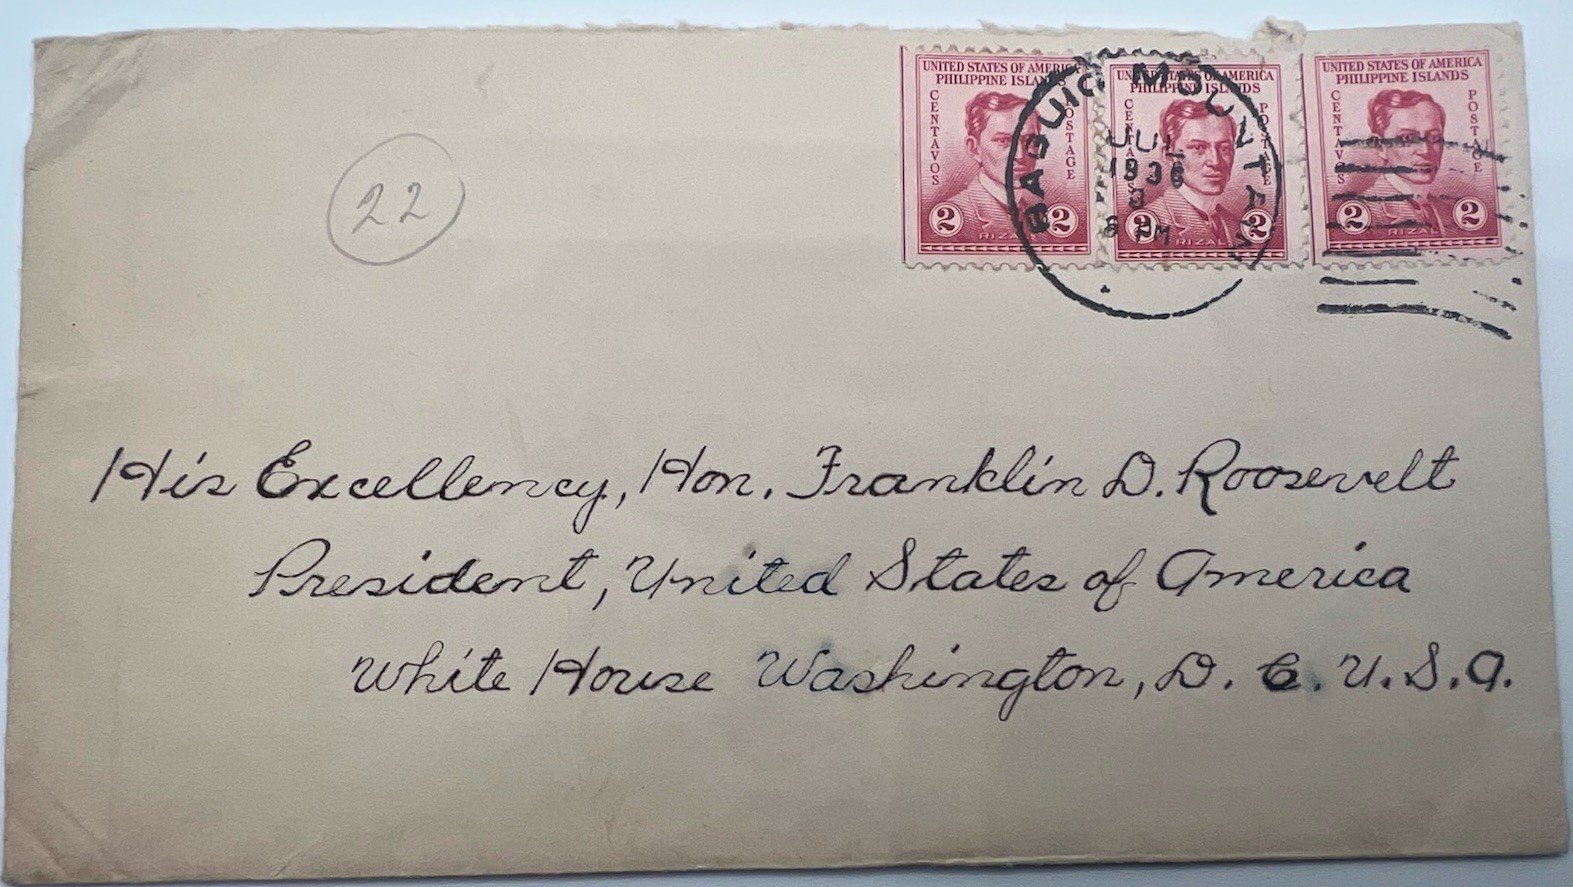 UNITED STATES OF AMERICA
PHILIPPINE ISLANDS
CENTAVOS
POSTAGE
2 2
RIZAL
UNITED STATES OF AMERICA
PHILIPPINE ISLANDS
CENTAVOS
POSTAGE
2 2
RIZAL
UNITED STATES OF AMERICA
PHILIPPINE ISLANDS
CENTAVOS
POSTAGE
2 2
RIZAL
BAGUIO MOUNTAIN
JUL
1936
8 PM
22
His Excellency, Hon. Franklin D. Roosevelt
President, United States of America
White House Washington, D. C. U. S. A.